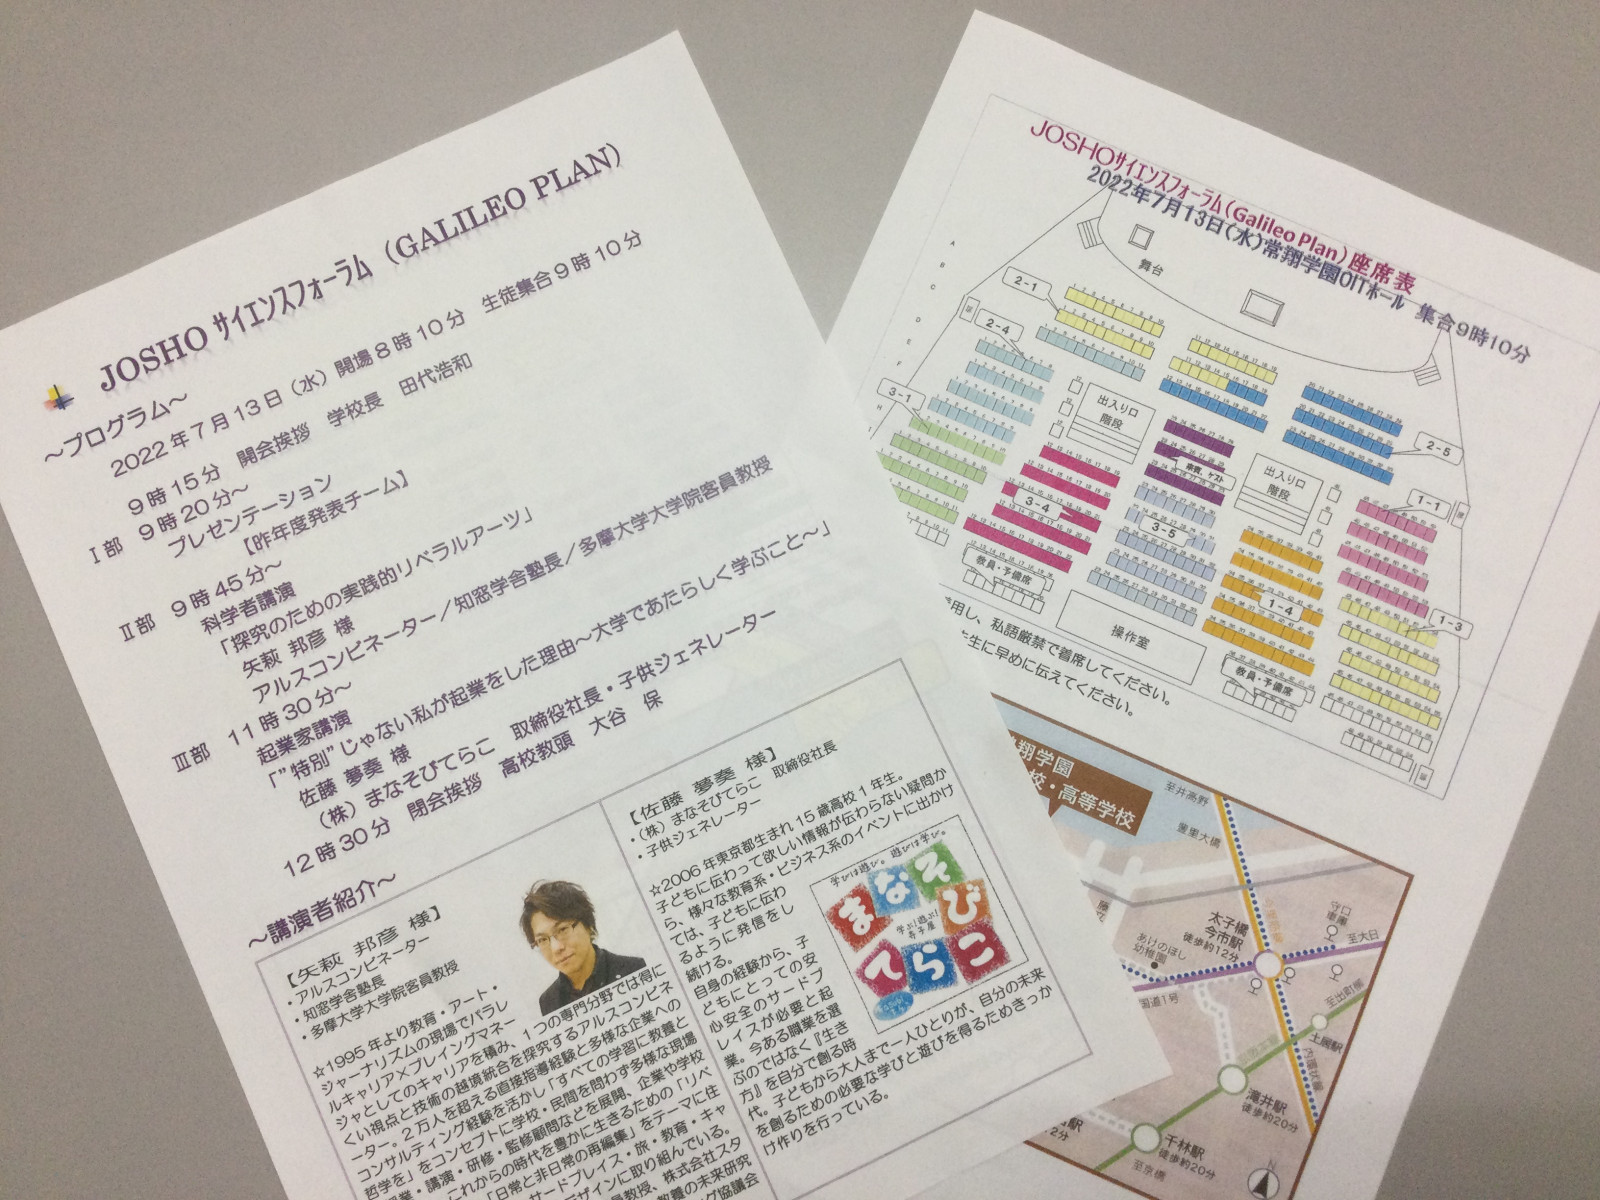 JOSHO サイエンスフォーラム（GALILEO PLAN）
～プログラム～
2022年7月13日（水）開場8時10分　生徒集合9時10分
9時15分　開会挨拶　学校長　田代浩和
Ⅰ部　9時20分～
プレゼンテーション
【昨年度発表チーム】
Ⅱ部　9時45分～
科学者講演
「探究のための実践的リベラルアーツ」
矢萩 邦彦 様
アルスコンビネーター／知窓学舎塾長／多摩大学大学院客員教授
Ⅲ部　11時30分～
起業家講演
「”特別”じゃない私が起業をした理由～大学であたらしく学ぶこと～」
佐藤 夢奏 様
（株）まなそびてらこ　取締役社長・子供ジェネレーター
12時30分　閉会挨拶　高校教頭　大谷　保
～講演者紹介～
【矢萩 邦彦 様】
・アルスコンビネーター
・知窓学舎塾長
・多摩大学大学院客員教授
☆1995年より教育・アート・
ジャーナリズムの現場でパラレ
ルキャリア×プレイングマネー
ジャとしてのキャリアを積み、1つの専門分野では得に
くい視点と技術の越境統合を探究するアルスコンビネ
ーター。2万人を超える直接指導経験と多様な企業への
コンサルティング経験を活かし「すべての学習に教養と
哲学を」をコンセプトに学校・民間を問わず多様な現場
授業・講演・研修・監修顧問などを展開、企業や学校
これからの時代を豊かに生きるための「リベ
「日常と非日常の再編集」をテーマに住
サードプレイス・旅・教育・キャ
デザインに取り組んでいる。
員教授、株式会社スタ
教養の未来研究
グ協議会
【佐藤 夢奏 様】
・（株）まなそびてらこ　取締役社長
・子供ジェネレーター
☆2006年東京都生まれ15歳高校1年生。
子どもに伝わって欲しい情報が伝わらない疑問か
ら、様々な教育系・ビジネス系のイベントに出かけ
ては、子どもに伝わ
るように発信をし
続ける。
自身の経験から、子
どもにとっての安
心安全のサードプ
レイスが必要と起
業。今ある職業を選
ぶのではなく『生き
方』を自分で創る時
代。子どもから大人まで一人ひとりが、自分の未来
を創るための必要な学びと遊びを得るためきっか
け作りを行っている。
学びは遊び。遊びは学び。
まなそび
学ぶ！遊ぶ！
寺子屋
てらこ
JOSHOサイエンスフォーラム（Galileo Plan）座席表
2022年7月13日（水）常翔学園OITホール　集合9時10分
舞台
A
B
C
D
E
F
H
2-1
2-4
3-1
出入り口
階段
来賓、ゲスト
出入り口
階段
2-5
1-1
3-4
3-5
1-4
1-3
教員・予備席
操作室
教員・予備席
使用し、私語厳禁で着席してください。
先生に早めに伝えてください。
翔学園
校・高等学校
至井高野
菅里大橋
守口
車庫
至大日
太子橋
今市駅
徒歩約12分
あけのほし
幼稚園
国道1号
至出町柳
土居駅
内環状線
滝井駅
徒歩約20分
千林駅
徒歩約20分
至京橋
N